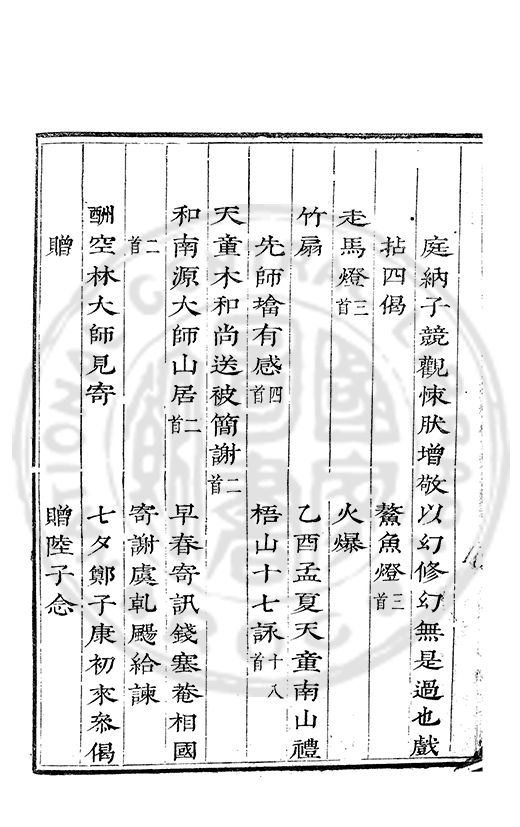 庭納子競觀悚肰增敬以幻修幻無是過也戲
拈四偈 鰲魚燈三首
走馬燈三首 火爆
竹扇 乙酉孟夏天童南山禮
先師塔有感四首 梧山十七詠十八首
天童木和尚送被簡謝二首
和南源大師山居二首 早春寄訊錢塞菴相國
二首 寄謝虞軋颺給諫
酬空林大師見寄 七夕鄭子康初來叅偈
贈 贈陸子念